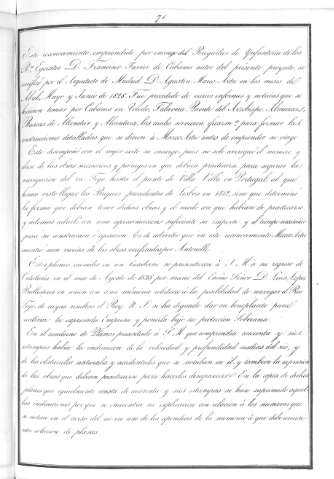 7ª
Este reconocimiento emprendido por encargo del Brigadier de Ynfantería de los
Rs Egercitos D. Francisco Xavier de Cabanes autor del presente proyecto se
verificó por el Arquitecto de Madrid D. Agustin Marco Artu en los meses de
Abril, Mayo y Junio de 1828. Fue precedido de varios informes y noticias que se
hicieron tomar por Cabanes en Toledo, Talavera, Puente del Arzobispo, Almaraz,
Barcas de Alconetar y Alcántara, los cuales sirvieron para formar las
instrucciones detalladas que se dieron á Marco Artu antes de emprender su viage
Este desempeñó con el mejor acierto su encargo, pues no solo averiguó el numero y
clase de las obras necesarias y paragès en que debian practicarse para asegurar la
navegacion del rio Tajo hasta el punto de Villa Velha en Portugal al que
habian visto llegar los Buques procedentes de Lisboa en 1812, sino que determinó
la forma que debian tener dichas obras y el modo con que habian de practicarse
y ademas calculó con una aproximacion suficiente su importe y el tiempo necesario
para su construccion ó egecucion. Es de advertir que en este reconocimiento Marco Artu
encontró aun vestigios de las obras verificadas por Antonelli.
Estos planos reunidos en un Cuaderno se presentaron á S. M. á su regreso de
Cataluña en el mes de Agosto de 1828 por mano del Exmo Señor D. Luis Lopez
Ballesteros en union con una memoria relativa á la posibilidad de navegar el Rio
Tajo de cuyas resultas el Rey N. S. se ha dignado dar su beneplacito para
realizar la espresada Empresa y ponerla bajo su proteccion Soberana.
En el cuaderno de Planos presentado á S. M. que comprendia cincuenta y seis
estampas habia las indicaciones de la velocidad y profundidad medias del rio, y
de los obstaculos naturales y accidentales que se notaban en él, y tambien la espresion
de las obras que debian practicarse para hacerlos desaparecer. En la copia de dichos
planos que igualmente consta de cincuenta y seis estampas se han suprimido aquel-
las indicaciones por que se encuentra su esplicacion con relacion á los numeros que
se notan en el curso del rio en uno de los apendices de la memoria á que debe acompa-
ñar esta coleccion de planos